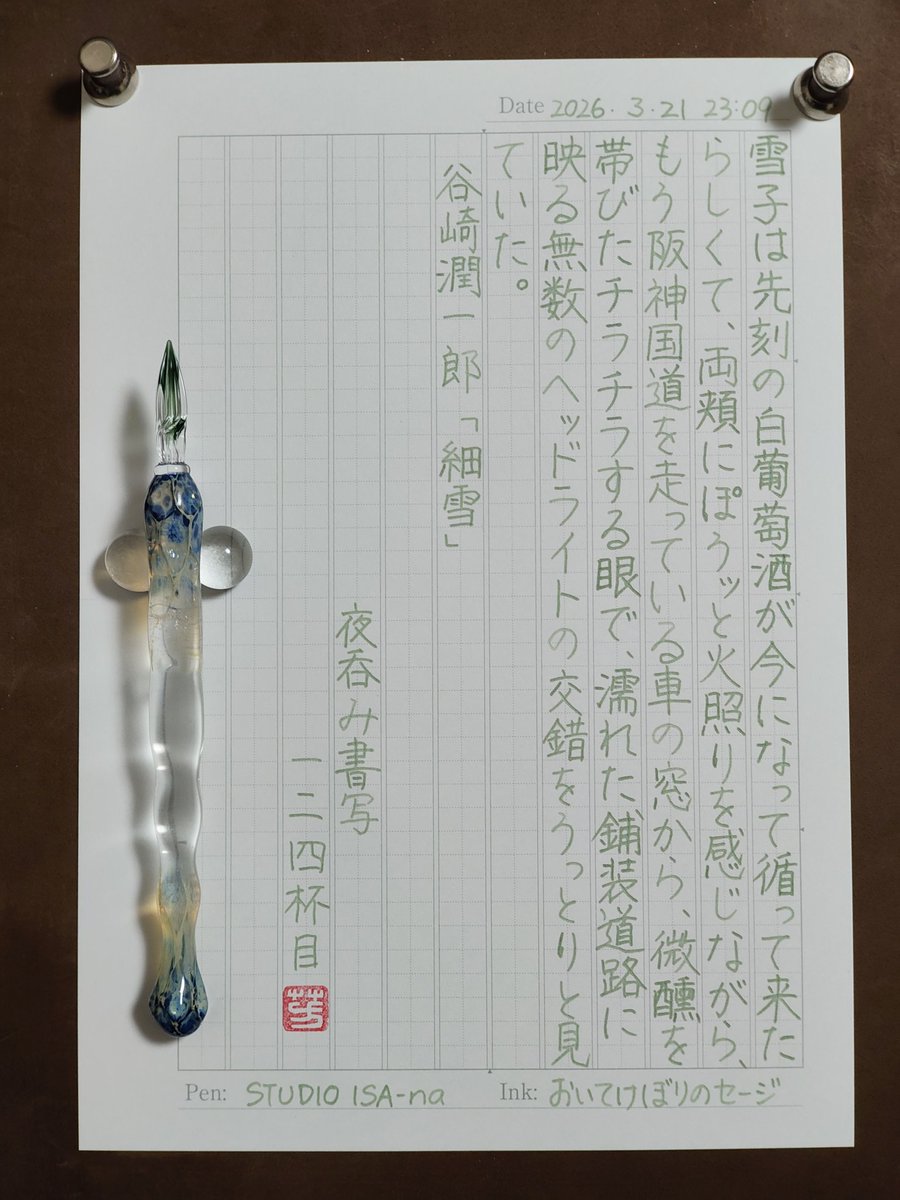 Date 2026. 3.21 23:09
雪子は先刻の白葡萄酒が今になって循って来た
らしくて、両頬にぽうッと火照りを感じながら、
もう阪神国道を走っている車の窓から、微醺を
帯びたチラチラする眼で、濡れた鋪装道路に
映る無数のヘッドライトの交錯をうっとりと見
ていた。
谷崎潤一郎「細雪」
夜呑み書写
一二四杯目
Pen: STUDIO ISA-na
Ink: おいてけぼりのセージ